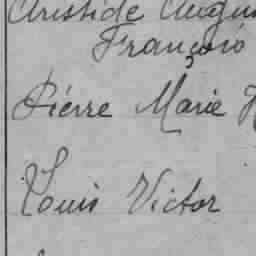 Aristide
François
Piérre Marie
Louis Victor